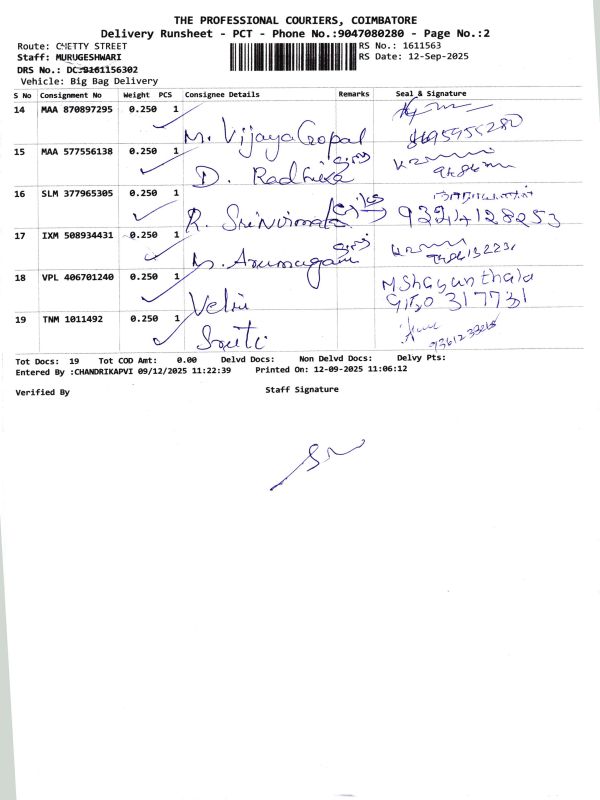 THE PROFESSIONAL COURIERS, COIMBATORE
Delivery Runsheet - PCT - Phone No.:9047080280 - Page No.:2
Route: CHETTY STREET RS No.: 1611563
Staff: MURUGESHWARI RS Date: 12-Sep-2025
DRS No.: DC-9161156302
Vehicle: Big Bag Delivery
S No Consignment No Weight PCS Consignee Details Remarks Seal & Signature
14 MAA 870897295 0.250 1
M. VijayaGopal
15 MAA 577556138 0.250 1
D. Radhika
16 SLM 377965305 0.250 1
R. 9324128253
17 IXM 508934431 0.250 1
M. Arumugam
18 VPL 406701240 0.250 1 M Shagunthala
Velu 317731
19 TNM 1011492 0.250 1
Tot Docs: 19 Tot COD Amt: 0.00 Delvd Docs: Non Delvd Docs: Delvy Pts:
Entered By :CHANDRIKAPVI 09/12/2025 11:22:39 Printed On: 12-09-2025 11:06:12
Verified By Staff Signature